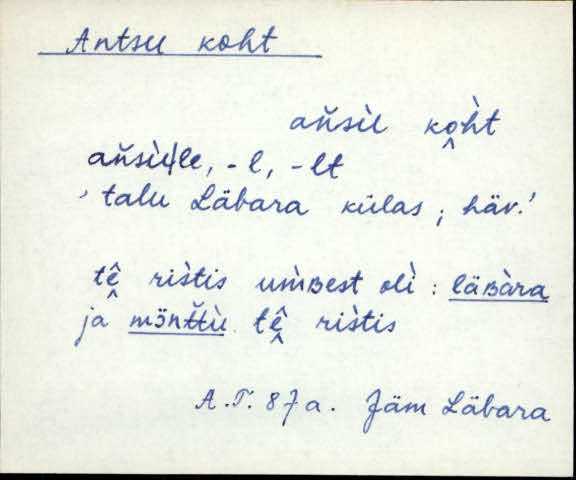 Antsu koht
añsìl ko̭h̀t
añsìlle, -l, -lt
'talu Läbara külas; häv.'
tḙ̂ ris̀tis um̀ʙest olì : läʙàra
ja mɜ̈nt̆t̆ù tḙ̂ ris̀tis
A.T. 87a. Jäm Läbara